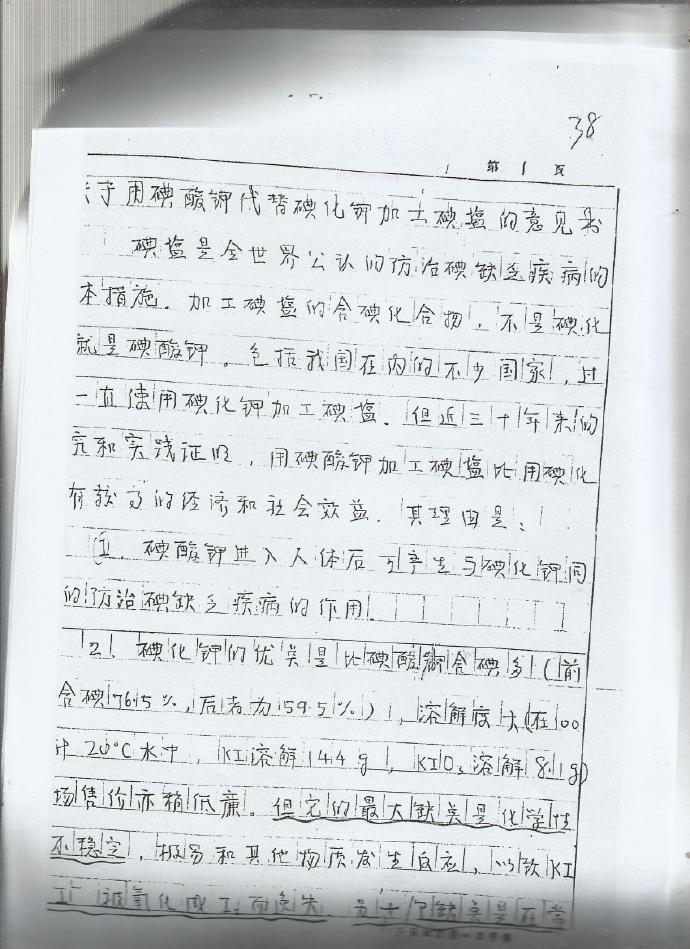 38
第 1 页
关于用碘酸钾代替碘化钾加工碘盐的意见书
碘盐是全世界公认的防治碘缺乏疾病的
本措施．加工碘盐的含碘化合物，不是碘化
就是碘酸钾。包括我国在内的不少国家，过
一直使用碘化钾加工碘盐．但近三十年来的
究和实践证明，用碘酸钾加工碘盐比用碘化
有较高的经济和社会效益．其理由是：
1．碘酸钾进入人体后可产生与碘化钾同
的防治碘缺乏疾病的作用．
2．碘化钾的优点是比碘酸钾含碘多（前
含碘76.5%，后者为59.5%），溶解度大（在100
20°C水中，KI溶解144g，KIO₃溶解8.1g）
场售价亦稍低廉。但它的最大缺点是化学性
不稳定，极易和其他物质发生反应，以致KI
I⁻被氧化成I₂而丧失．缺点是在常